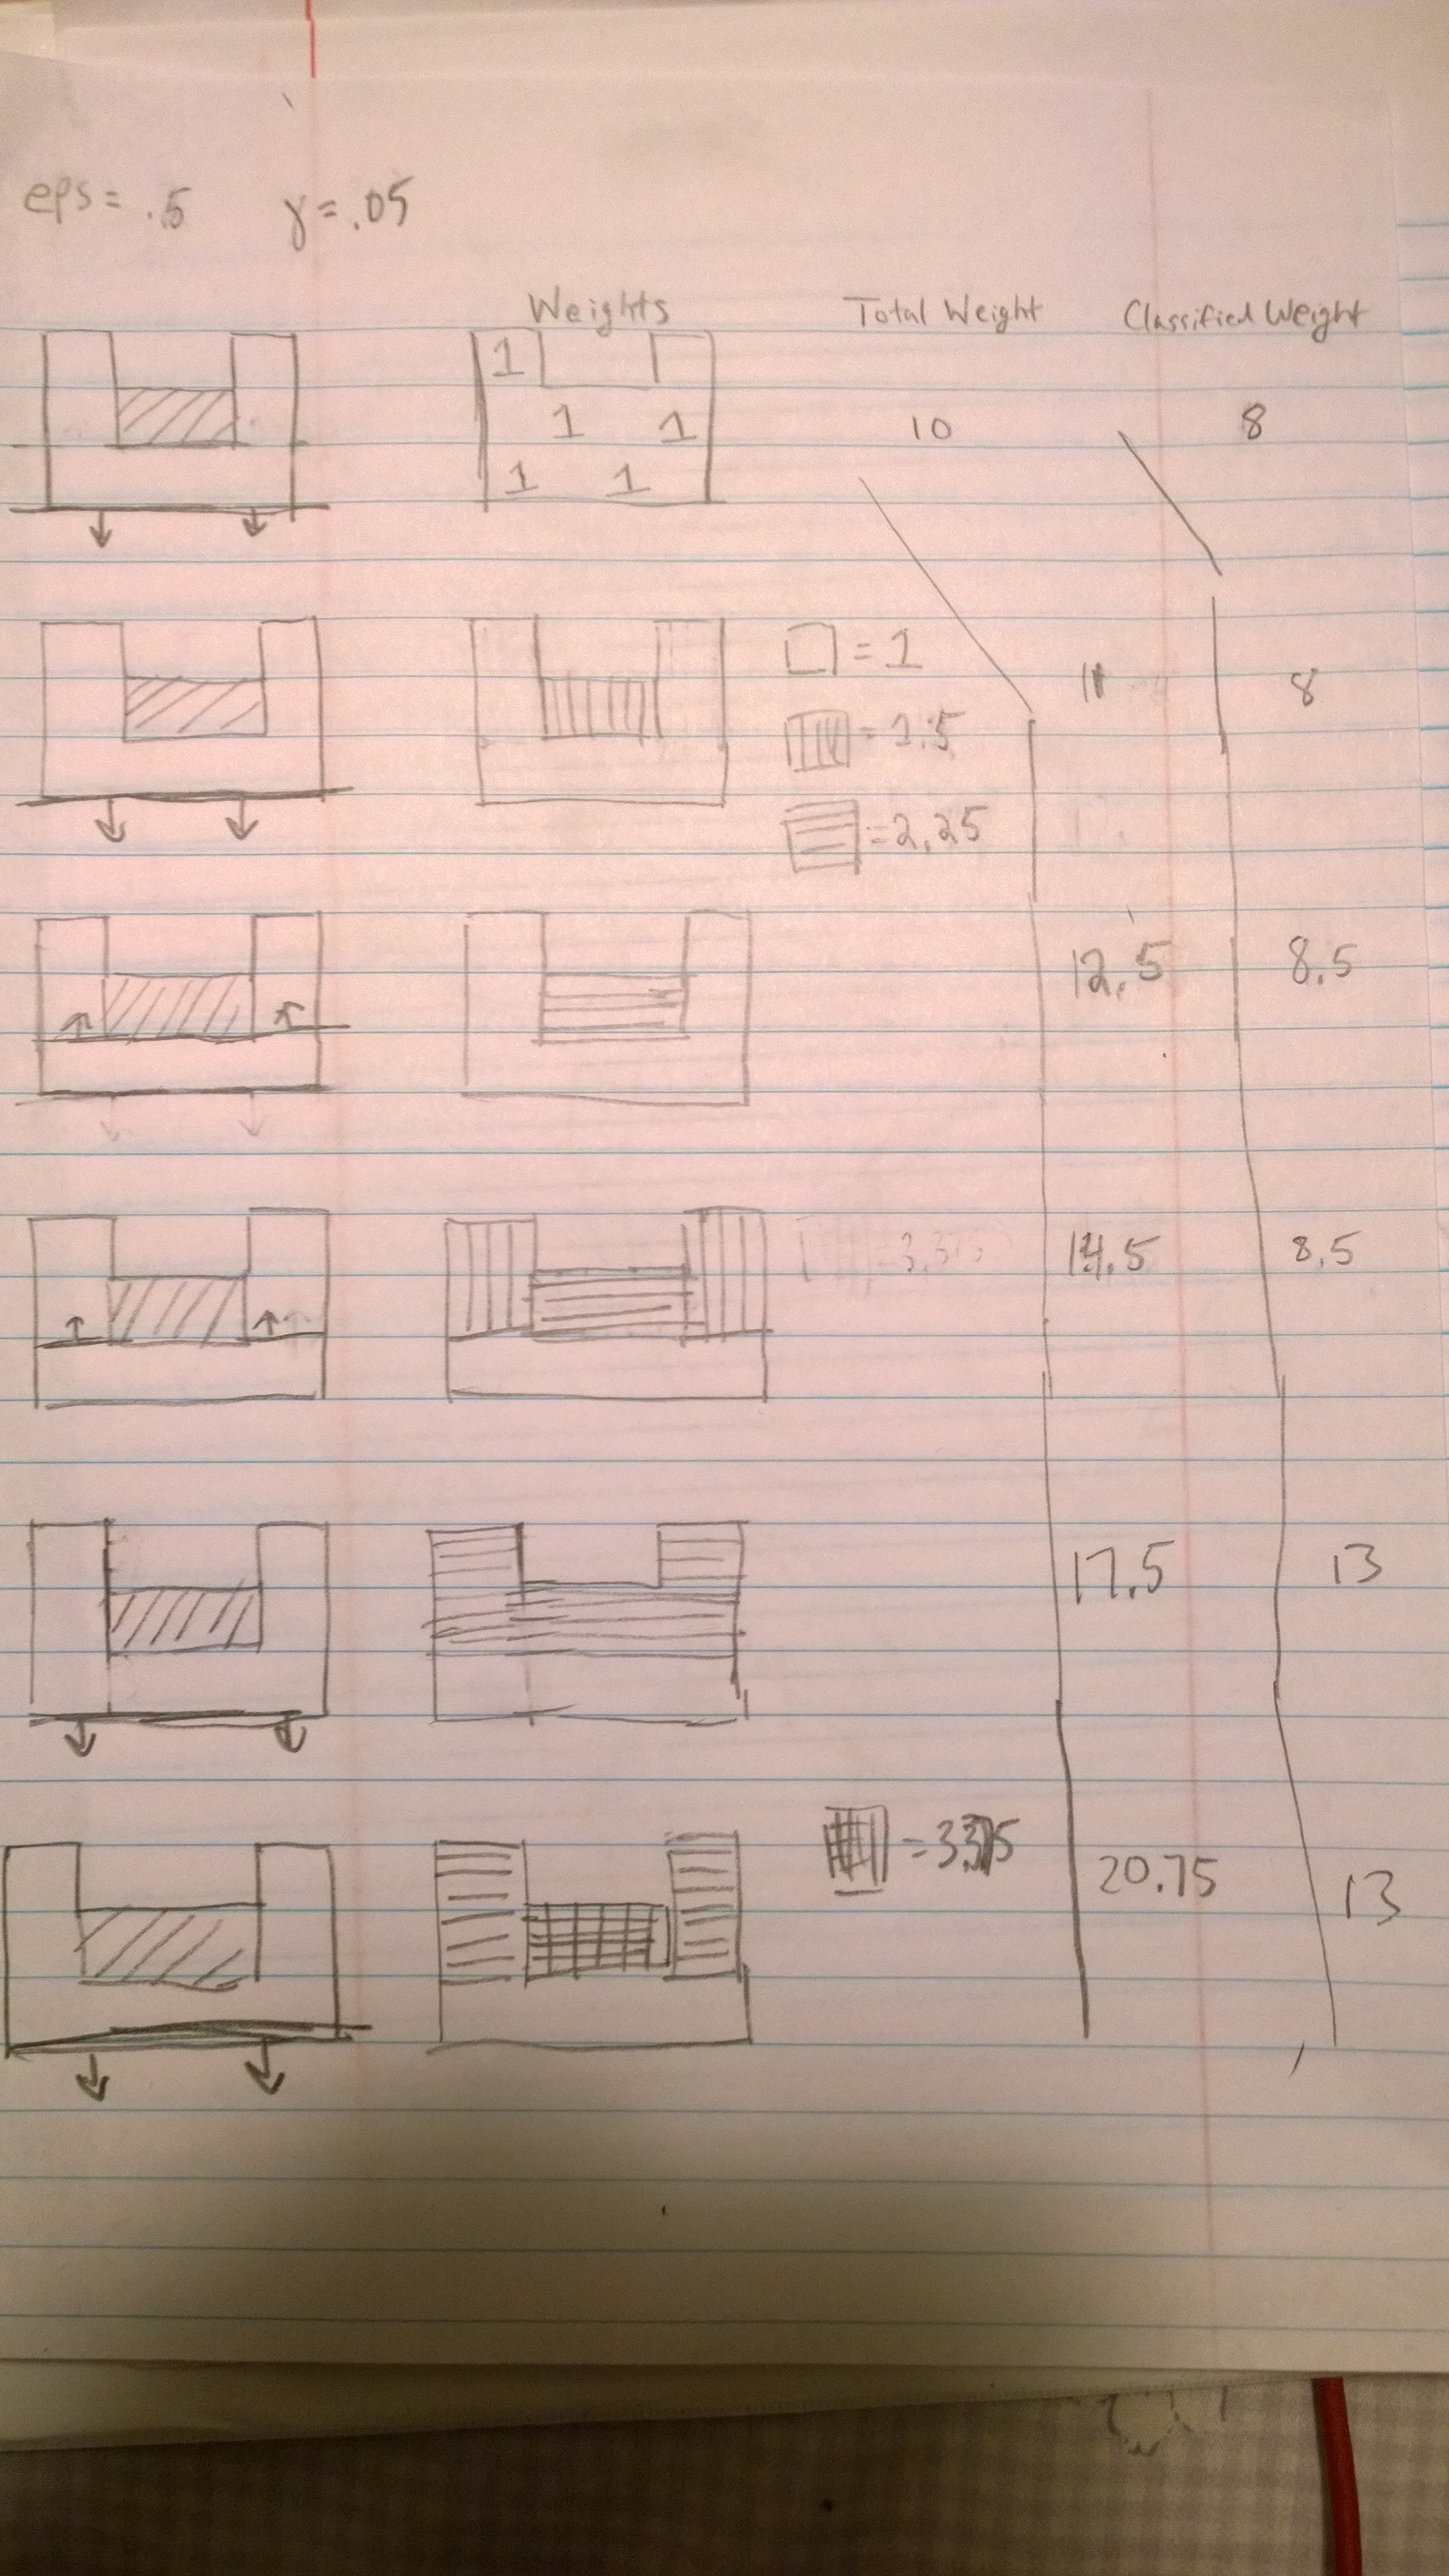 eps= .5 γ= .05
Weights Total Weight Classified Weight
1
1 1 10 8
1 1
□ = 1 11 8
= 1.5
= 2.25
12.5 8.5
= 3.375 14.5 8.5
17.5 13
= 3.375 20.75 13